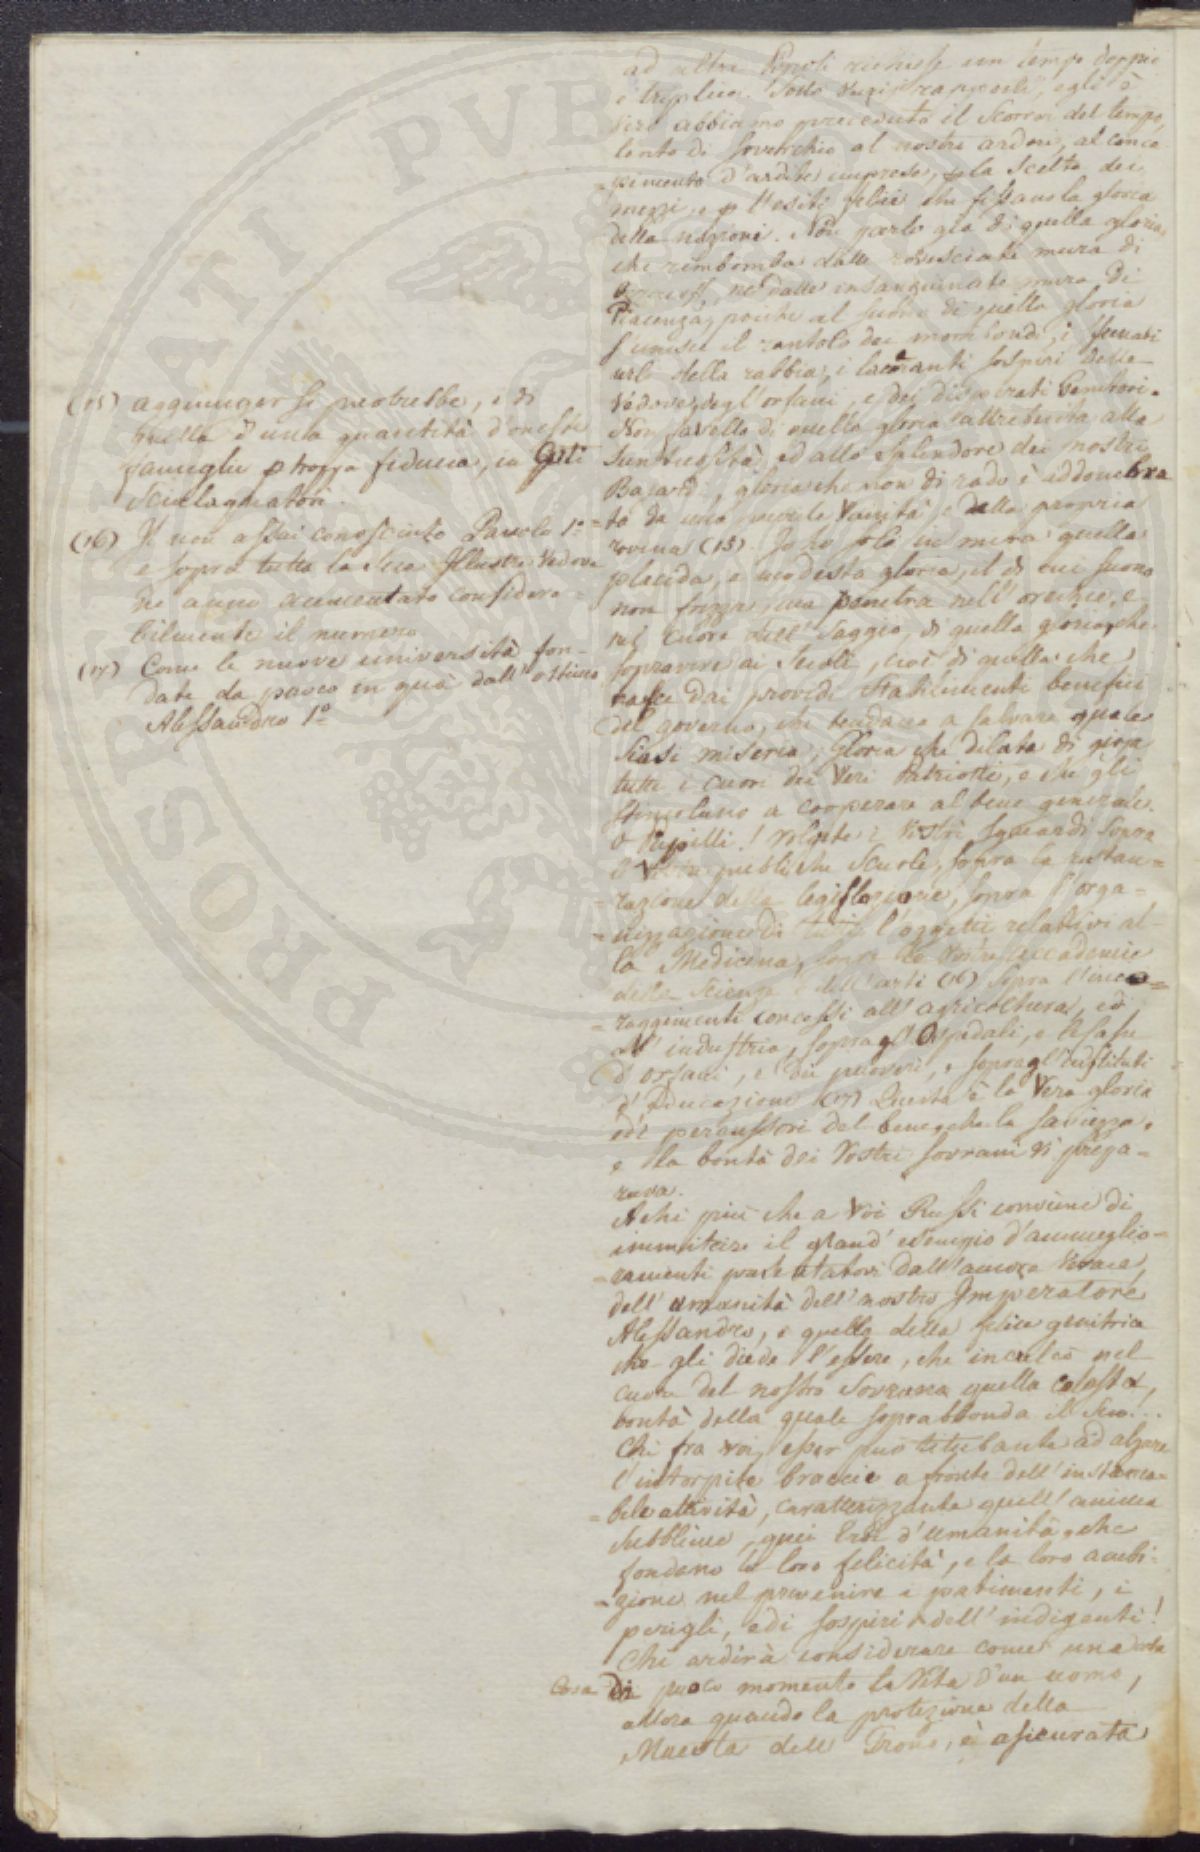 ad altri Popoli richiese un tempo doppio
e triplice. Sotto rapporti, egli è
vero abbiamo preceduto il Scorrer del tempo,
lento di soverchio al nostro ardore, al conce
=pimento d'ardite imprese, la Scelta dei
mezzi, e p l'esiti felici che fissano la gloria
della nazione. Non parlo già di quella gloria,
che rimbomba dalle rovesciate mura di
ne dalle insanguinate mura di
Piacenza, poiche al suono di quella gloria
s'unisce il rantolo dei moribondi, i
urli della rabbia, i laceranti sospiri delle
Vedove, degl'orfani, e dei disperati Genitori.
Non favello di quella gloria attribuita alla
Suntuosità, ed allo splendore dei nostri
Bojardi, gloria che non di rado è addombra
=ta da una puerile Vanità e dalla propria
rovina (15). Io ho solo in mira quella
placida, e modesta gloria, il di cui suono
non forza, ma penetra nell'orechie, e
nel cuore dell'Saggio, di quella gloria, che
sopravive ai Secoli, cioè di quella che
nasce dai providi stabilimenti benefici
del governo, che tendano a salvare quale
siasi miseria; Gloria che dilata di gioja
tutti i cuori dei Veri Patriotti, e che gli
stimolano a cooperare al bene generale.
O Pupilli! Volgete i Vostri sguardi sopra
le Vostre publiche Scuole, sopra la restau=
=razione della legislazione, sopra l'orga=
=nizzazione di tutti l'oggetti relativi al-
la Medicina, sopra le Vostre accademie
delle Scienze e dell'arti (16) sopra l'inco=
=raggimenti concessi all'agricoltura, ed
all'industria, sopra gl'Ospedali, e le case
d'orfani, e dei poveri, e sopra gl'instituti
d'Educazione (17) Questa è la Vera gloria
del bene, che la saviezza,
e la bontà dei Vostri Sovrani vi prepa=
rava.
A chi piu che a Voi Russi conviene di
immitare il grand'esempio d'ammeglio=
=ramenti presentatovi dall'amore verace
dell'umanità dell'nostro Imperatore
Alessandro, e quello della felice genitrice
che gli diede l'essere, che inculcò nel
cuore del nostro Sovrano quella celeste
bontà della quale soprabbonda il Suo...
Chi fra voi, esser può titubante ad alzare
l'intorpite braccie a fronte dell'instanca=
=bile attività, caratterizzante quell'anima
subblime, quei Eroi d'umanità, che
fondano la loro felicità, e la loro ambi=
=zione nel prevenire i patimenti, i
perigli, ed i sospiri dell'indigenti!
Chi ardirà considerare come una cosa
Cosa di poco momento la Vita d'un uomo,
allora quando la protezione della
Maestà dell Trono, è asicurata
(15) aggiunger si potrebbe, e di
quella d'una quantità d'oneste
famiglie p troppa fiducia, in Gesti
Scialaquatori.
(16) Il non assai conosciuto Paolo 1º
e sopra tutto la Sua Illustre Vedova
ne anno aumentato considera=
bilmente il numero
(17) Come le nuove università fon-
date da poco in quà dall'ottimo
Alessandro 1º